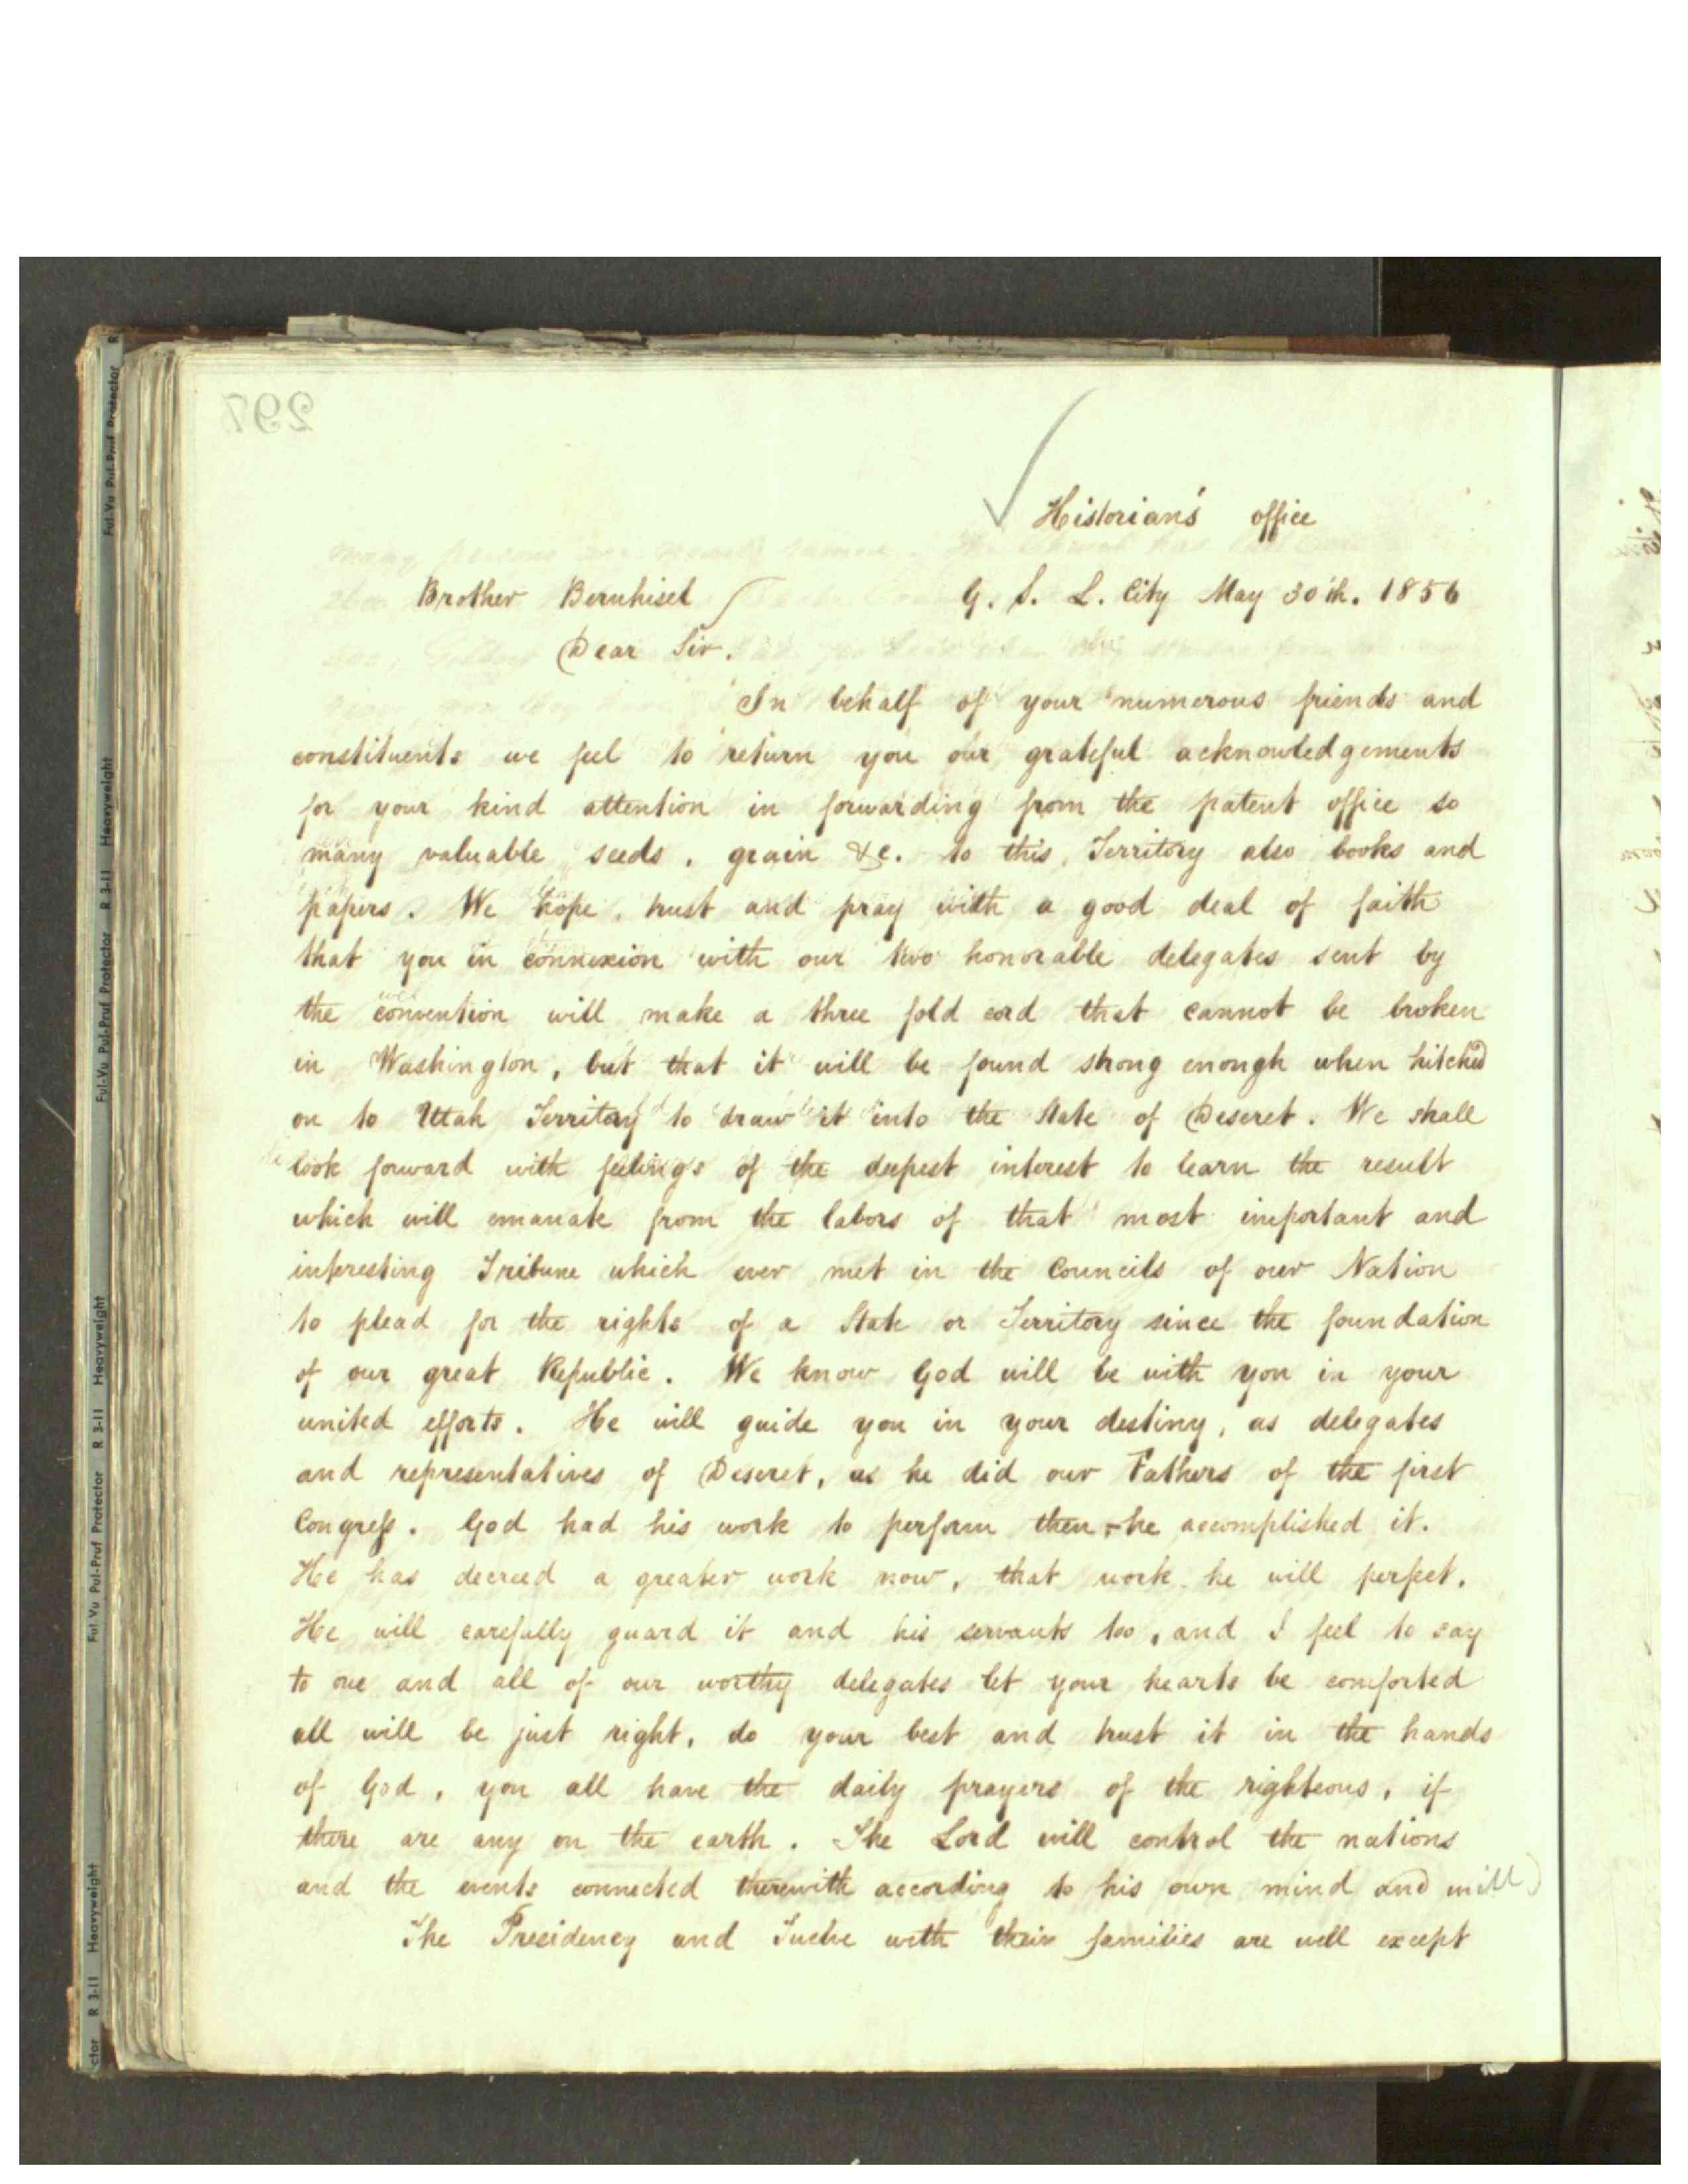 297
Historian's office
Brother Bernhisel G. S. L. City May 30th. 1856
Dear Sir.
In behalf of your numerous friends and
constituents we feel to return you our grateful acknowledgements
for your kind attention in forwarding from the patent office so
many valuable seeds, grain &c. to this Territory also books and
papers. We hope, trust and pray with a good deal of faith
that you in connexion with our two honorable delegates sent by
the convention will make a three fold cord that cannot be broken
in Washington, but that it will be found strong enough when hitched
on to Utah Territory to draw it into the State of Deseret. We shall
look forward with feelings of the deepest interest to learn the result
which will emanate from the labors of that most important and
interesting Tribune which ever met in the Councils of our Nation
to plead for the rights of a State or Territory since the foundation
of our great Republic. We know God will be with you in your
united efforts. He will guide you in your destiny, as delegates
and representatives of Deseret, as he did our Fathers of the first
Congress. God had his work to perform then - he accomplished it.
He has decreed a greater work now, that work he will perfect.
He will carefully guard it and his servants too, and I feel to say
to one and all of our worthy delegates let your hearts be comforted
all will be just right, do your best and trust it in the hands
of God, you all have the daily prayers of the righteous, if
there are any on the earth. The Lord will control the nations
and the events connected therewith according to his own mind and will
The Presidency and Twelve with their families are well except
Ful-Vu Pul-Pruf Protector R 3-11 Heavyweight